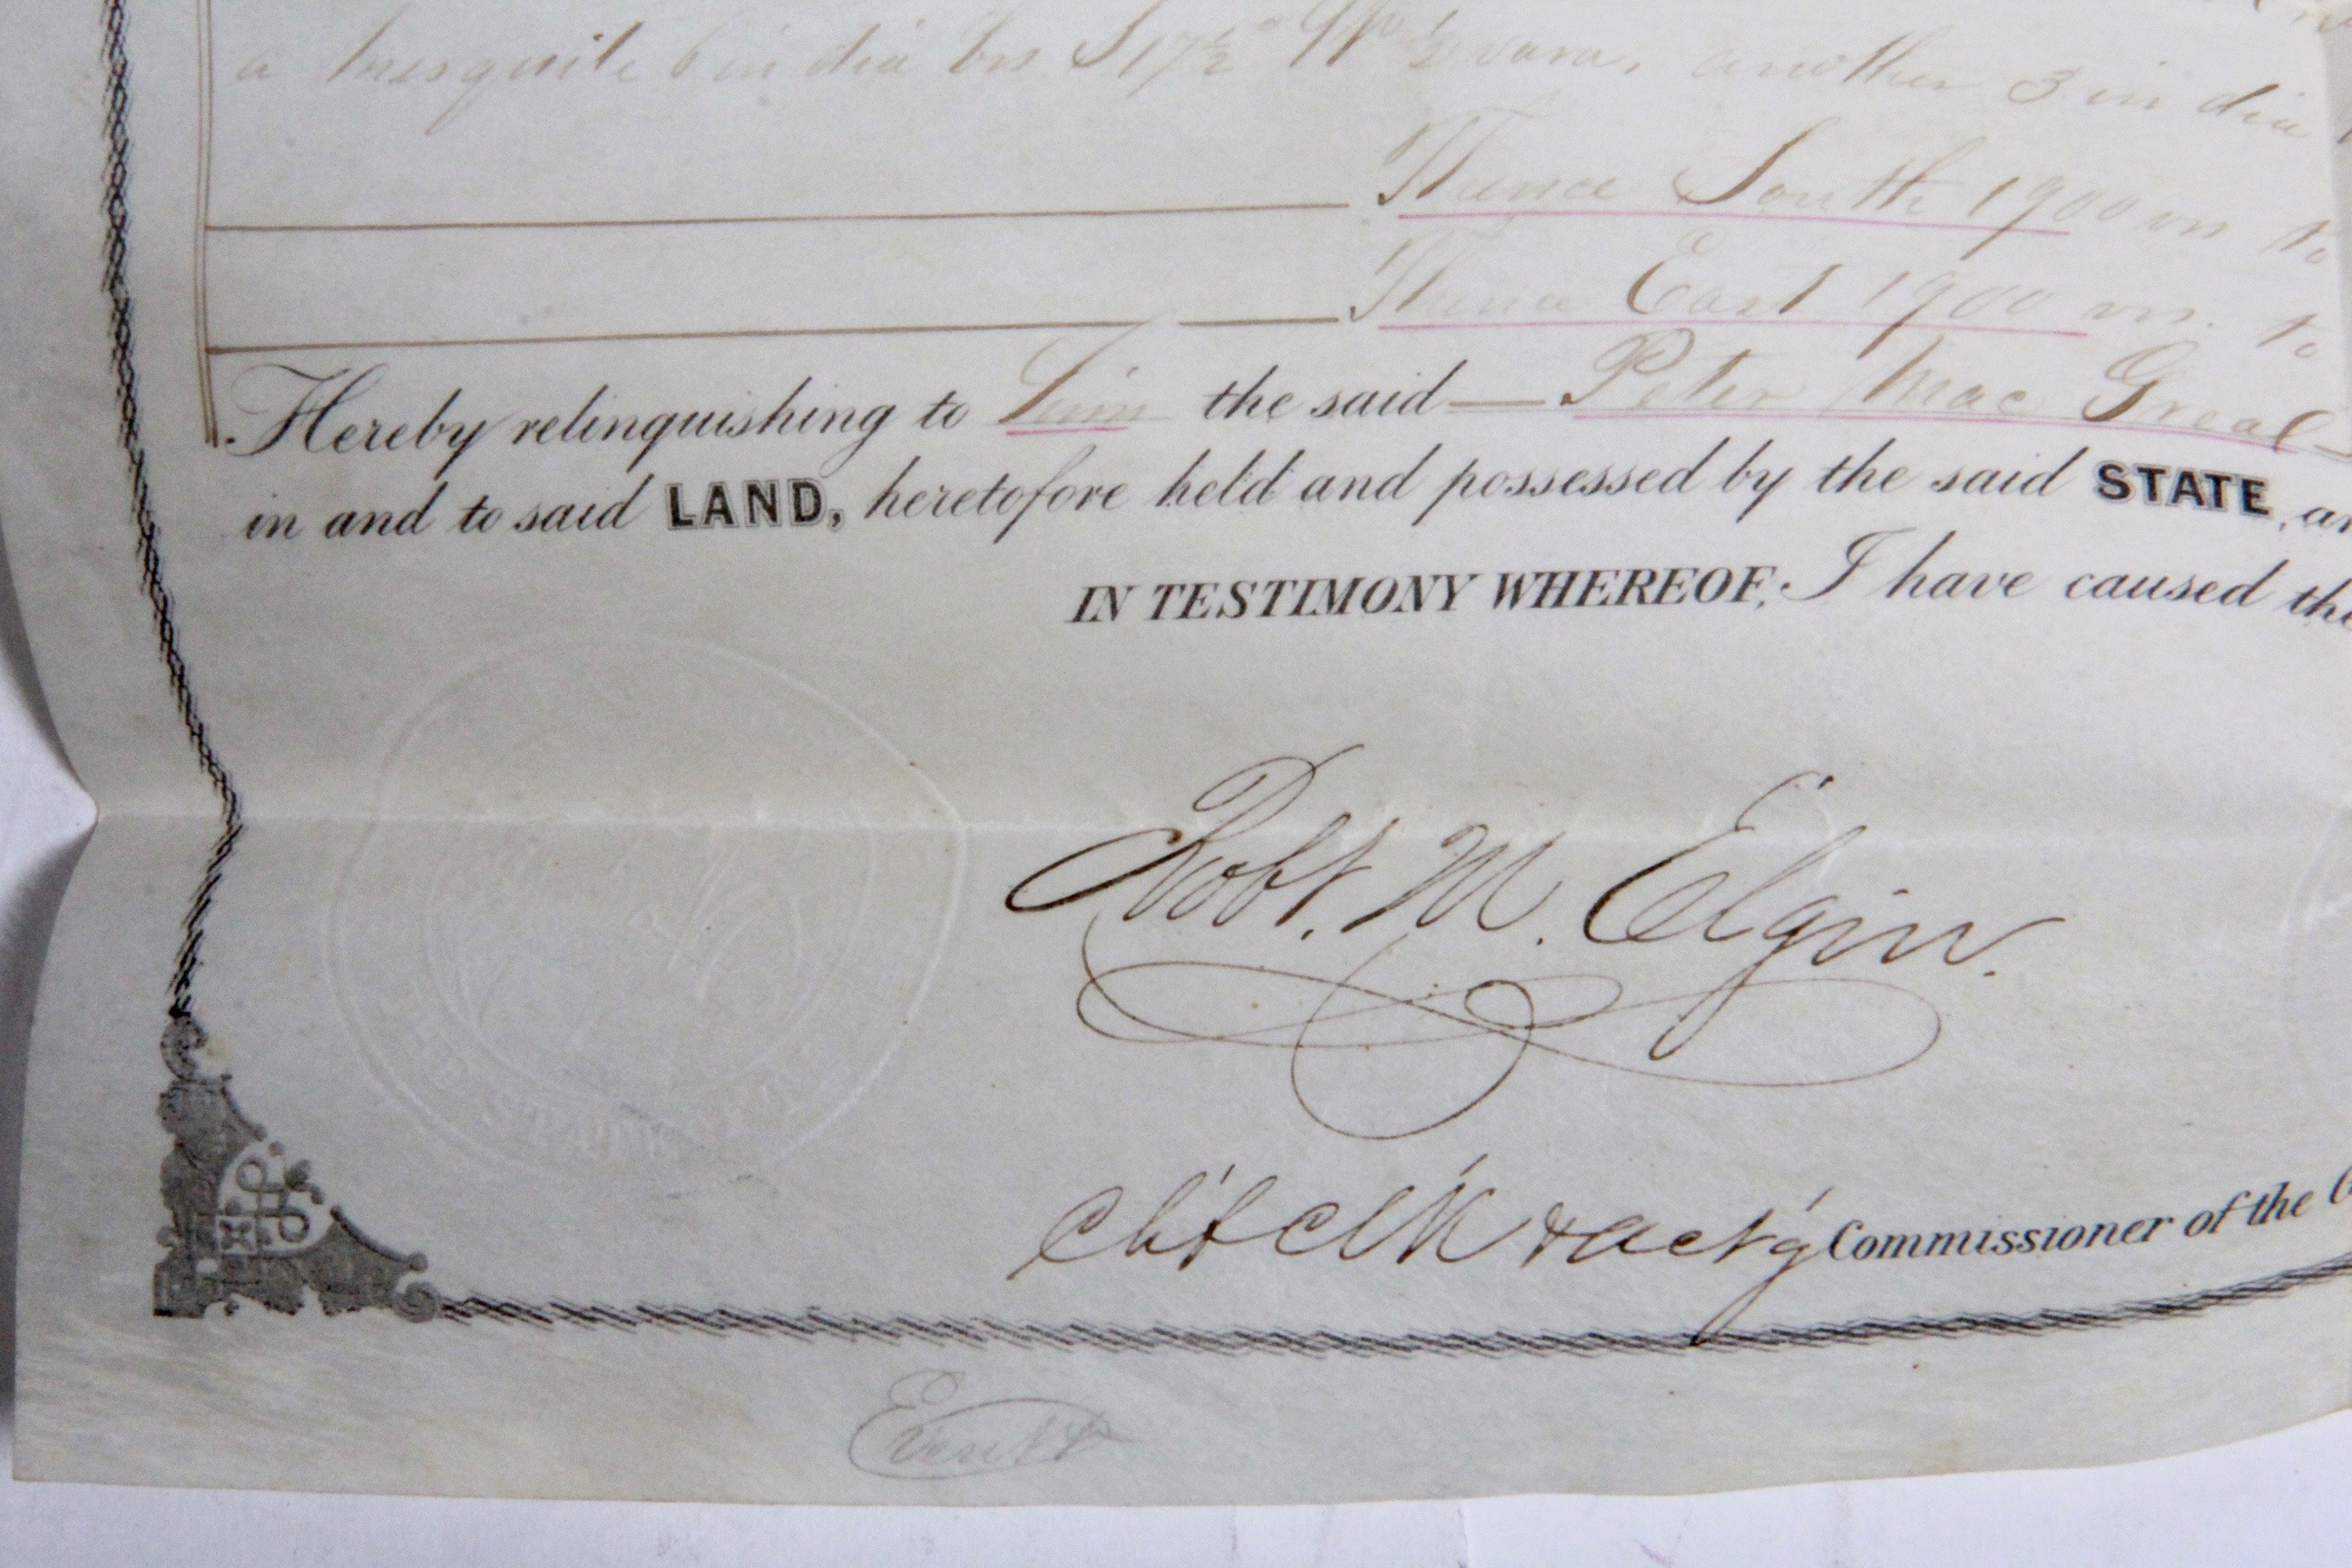 a Mesquite 6 in dia brs S 17½° W ½ vara, another 3 in dia
Thence South 1900 vrs to
Thence East 1900 vrs. to
Hereby relinquishing to him the said — Peter Mac Greal
in and to said LAND, heretofore held and possessed by the said STATE, an
IN TESTIMONY WHEREOF, I have caused the
Robt. M. Elgin.
Ch'f Cl'k & act'g Commissioner of the G